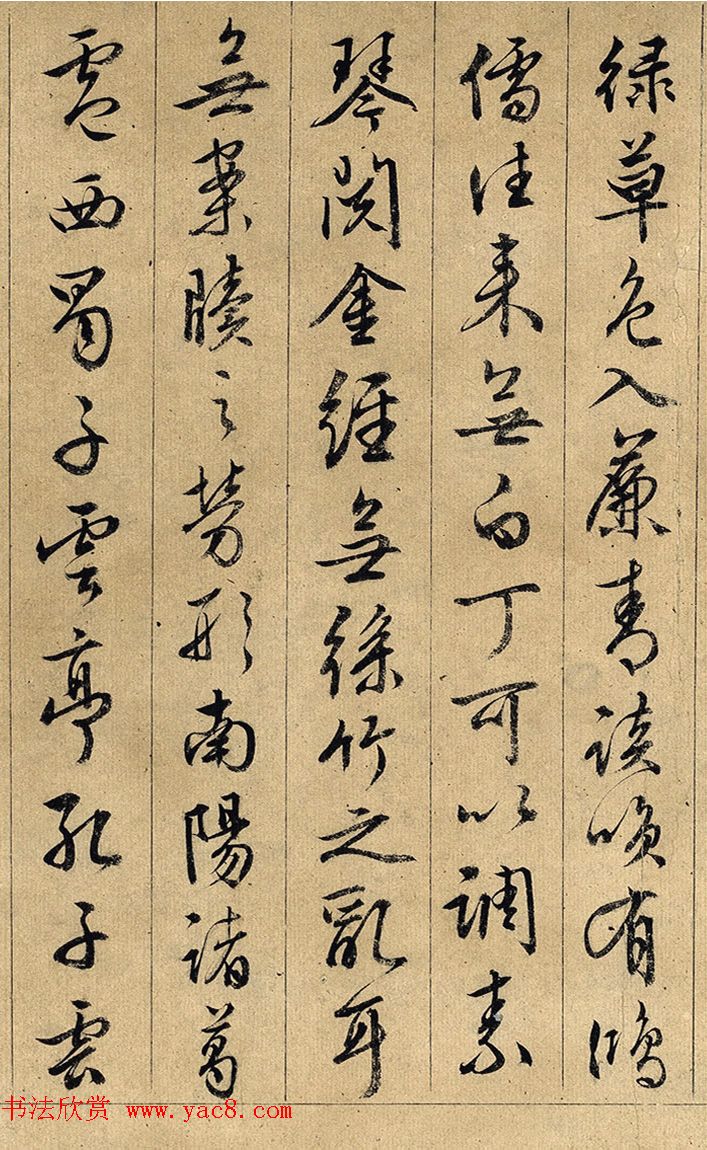 緑草色入簾青談咲有鴻
儒往来無白丁可以調素
琴閲金經無絲竹之亂耳
無案牘之勞形南陽諸葛
廬西蜀子雲亭孔子雲
书法欣赏 www.yac8.com